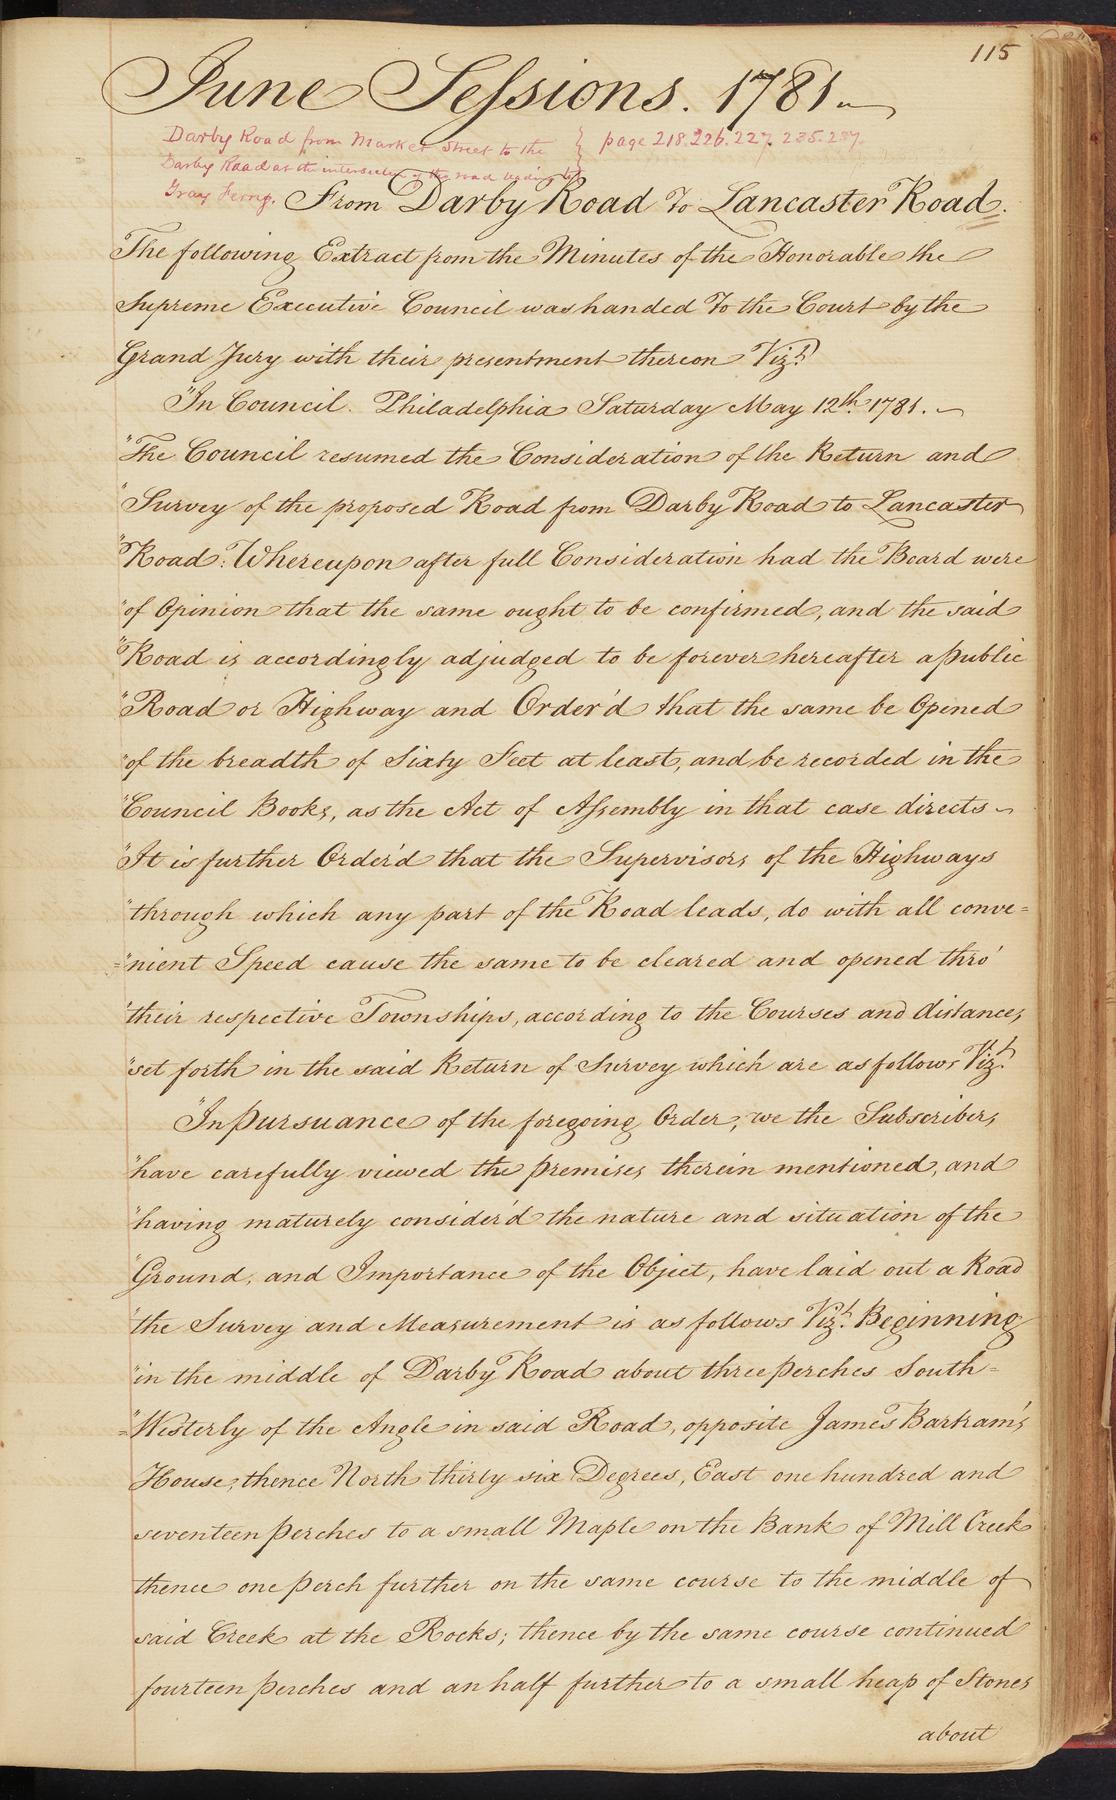 115
June Sessions. 1781.
Darby Road from Market Street to the } page 218.226.227.235.237.
Darby Road at the intersection of the road leading to
Grays Ferry.
From Darby Road To Lancaster Road.
The following Extract from the Minutes of the Honorable the
Supreme Executive Council was handed To the Court by the
Grand Jury with their presentment thereon Vizt.
"In Council. Philadelphia Saturday May 12th. 1781.
"The Council resumed the Consideration of the Return and
"Survey of the proposed Road from Darby Road to Lancaster
"Road: Whereupon after full Consideration had the Board were
"of Opinion that the same ought to be confirmed, and the said
"Road is accordingly adjudged to be forever hereafter a public
"Road or Highway and Order'd that the same be Opened
"of the breadth of Sixty Feet at least, and be recorded in the
"Council Books, as the Act of Assembly in that case directs
"It is further Order'd that the Supervisors of the Highways
"through which any part of the Road leads, do with all conve=
="nient Speed cause the same to be cleared and opened thro'
"their respective Townships, according to the Courses and distances
"set forth in the said Return of Survey which are as follows Vizt.
"In pursuance of the foregoing Order, we the Subscribers
"have carefully viewed the premises therein mentioned, and
"having maturely consider'd the nature and situation of the
"Ground, and Importance of the Object, have laid out a Road
"the Survey and Measurement is as follows Vizt. Beginning
"in the middle of Darby Road about three perches South=
="Westerly of the Angle in said Road, opposite James Bartram's
House, thence North thirty six Degrees, East one hundred and
seventeen perches to a small Maple on the Bank of Mill Creek
thence one perch further on the same course to the middle of
said Creek at the Rocks; thence by the same course continued
fourteen perches and an half further to a small heap of Stones
about